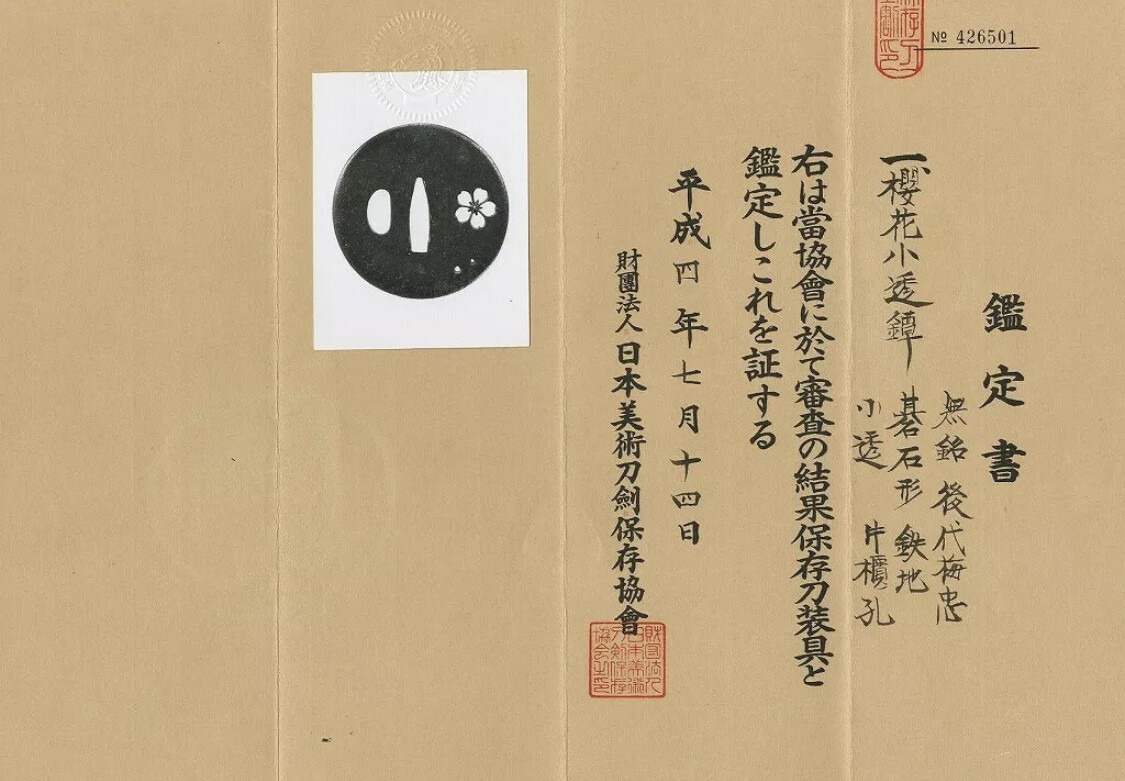 № 426501
鑑定書
一、櫻花小透鐔
無銘 後代梅忠
碁石形 鉄地
小透 片櫃孔
右は當協會に於て審査の結果保存刀装具と
鑑定しこれを証する
平成四年七月十四日
財團法人 日本美術刀劍保存協會
財団法人
日本美術
刀剣保存
協会之印